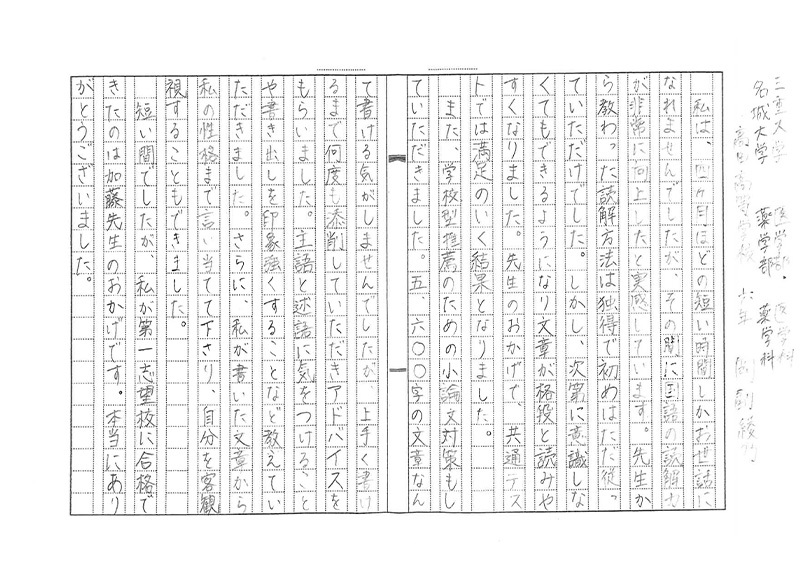 三重大学 医学部・医学科
名城大学 薬学部 薬学科
高田高等学校 六年
私は、四ヶ月ほどの短い時間しかお世話に
なれませんでしたが、その間に国語の読解力
が非常に向上したと実感しています。先生か
ら教わった読解方法は独得で初めはただ従っ
ていただけでした。しかし、次第に意識しな
くてもできるようになり文章が格段と読みや
すくなりました。先生のおかげで、共通テス
トでは満足のいく結果となりました。
また、学校型推薦のための小論文対策もし
ていただきました。五、六〇〇字の文章なん
て書ける気がしませんでしたが、上手く書け
るまで何度も添削していただきアドバイスを
もらいました。主語と述語に気をつけること
や書き出しを印象強くすることなど教えてい
ただきました。さらに、私が書いた文章から
私の性格まで言い当てて下さり、自分を客観
視することもできました。
短い間でしたが、私が第一志望校に合格で
きたのは加藤先生のおかげです。本当にあり
がとうございました。